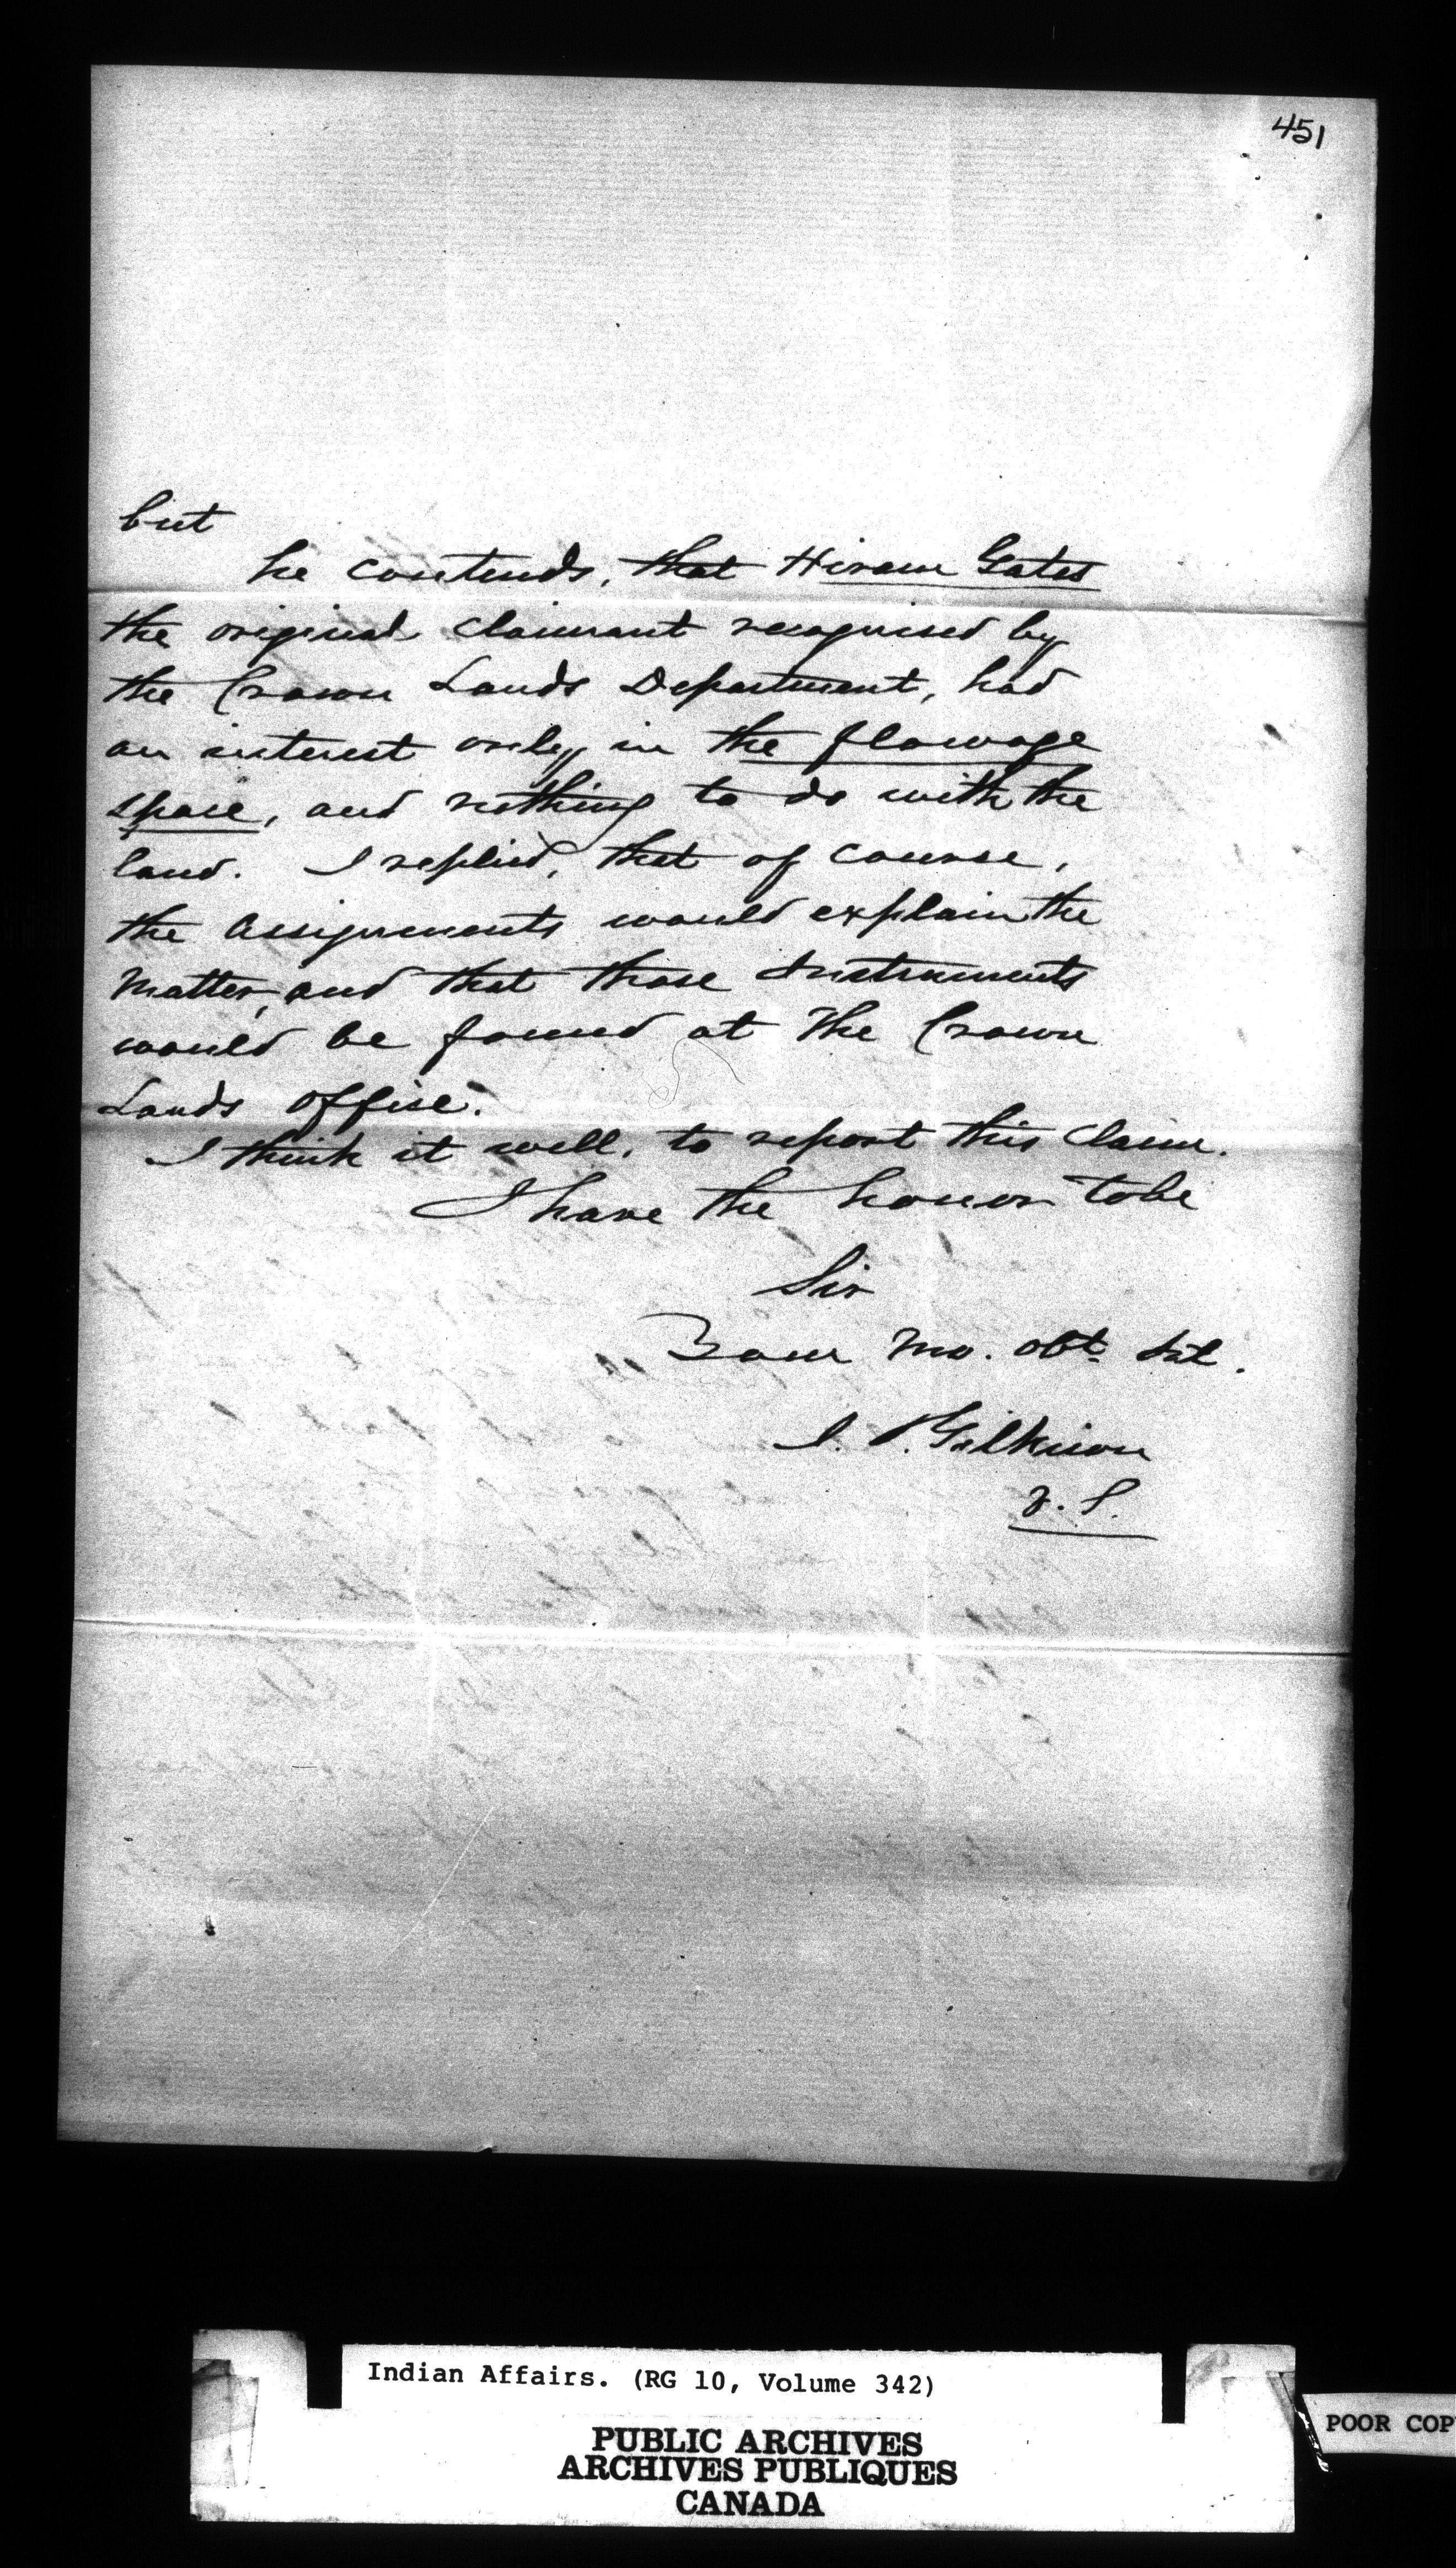 451
but
he contends, that Hiram Gates
the original claimant recognised by
the Crown Lands Department, had
an interest only in the flowage
space, and nothing to do with the
land. I replied, that of course,
the assignments would explain the
matter, and that those Instruments
would be found at the Crown
Lands Office.
I think it well, to report this claim.
I have the honor to be
Sir
Your mo. obt. Svt.
J. T. Gilkison
V. S.
Indian Affairs. (RG 10, Volume 342)
PUBLIC ARCHIVES
ARCHIVES PUBLIQUES
CANADA
POOR COP